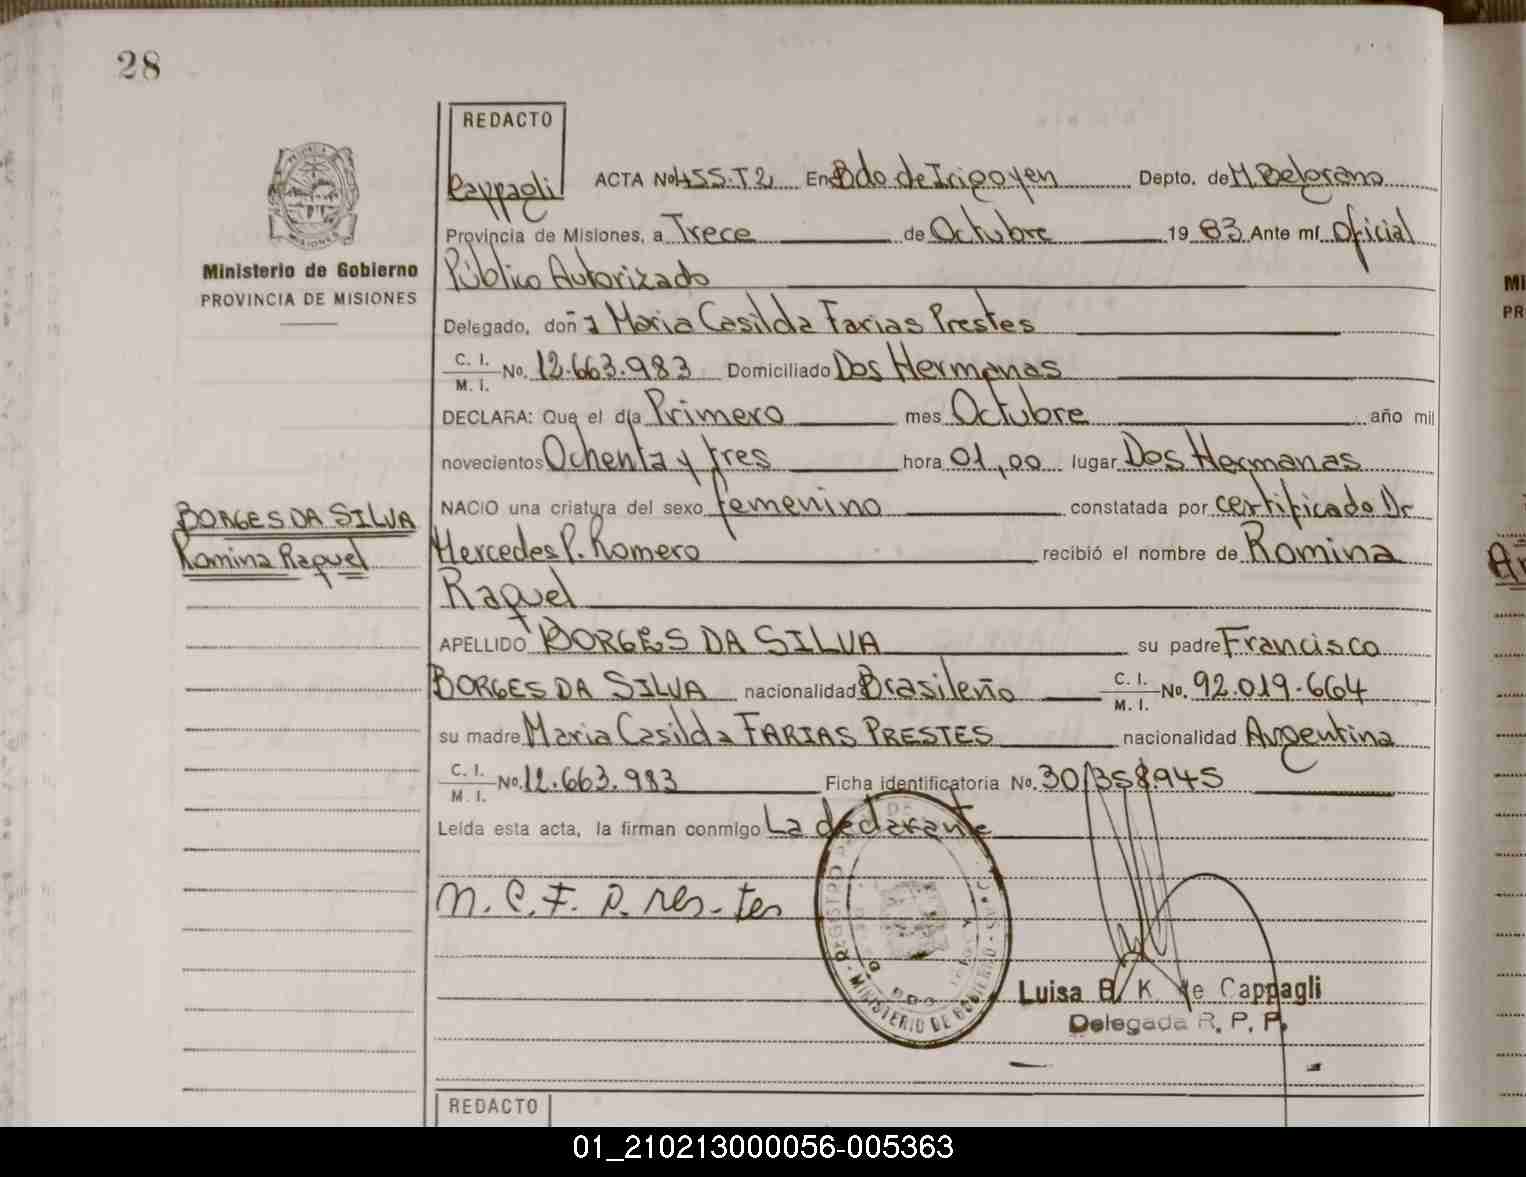 28
REDACTO
Cappagli
ACTA No 455.T2 En Bdo de Irigoyen Depto. de M. Belgrano
Provincia de Misiones, a Trece de Octubre 19 83 Ante mí Oficial
Público Autorizado
Delegado, doña Maria Casilda Farias Prestes
C. I.
M. I. No. 12.663.983 Domiciliado Dos Hermanas
DECLARA: Que el día Primero mes Octubre año mil
novecientos Ochenta y tres hora 01,00 lugar Dos Hermanas
NACIO una criatura del sexo femenino constatada por certificado Dr
Mercedes P. Romero recibió el nombre de Romina
Raquel
APELLIDO BORGES DA SILVA su padre Francisco
BORGES DA SILVA nacionalidad Brasileño C. I. M. I. No. 92.019.664
su madre Maria Casilda FARIAS PRESTES nacionalidad Argentina
C. I.
M. I. No. 12.663.983 Ficha identificatoria No. 30.358.945
Leída esta acta, la firman conmigo La declarante
M. C. F. P. res-tes
Luisa B. K. de Cappagli
Delegada R. P. P.
REGISTRO
MINISTERIO DE GOBIERNO
PROVINCIA
MISIONES
Ministerio de Gobierno
PROVINCIA DE MISIONES
BORGES DA SILVA
Romina Raquel
REDACTO
Mi
PR
01_210213000056-005363